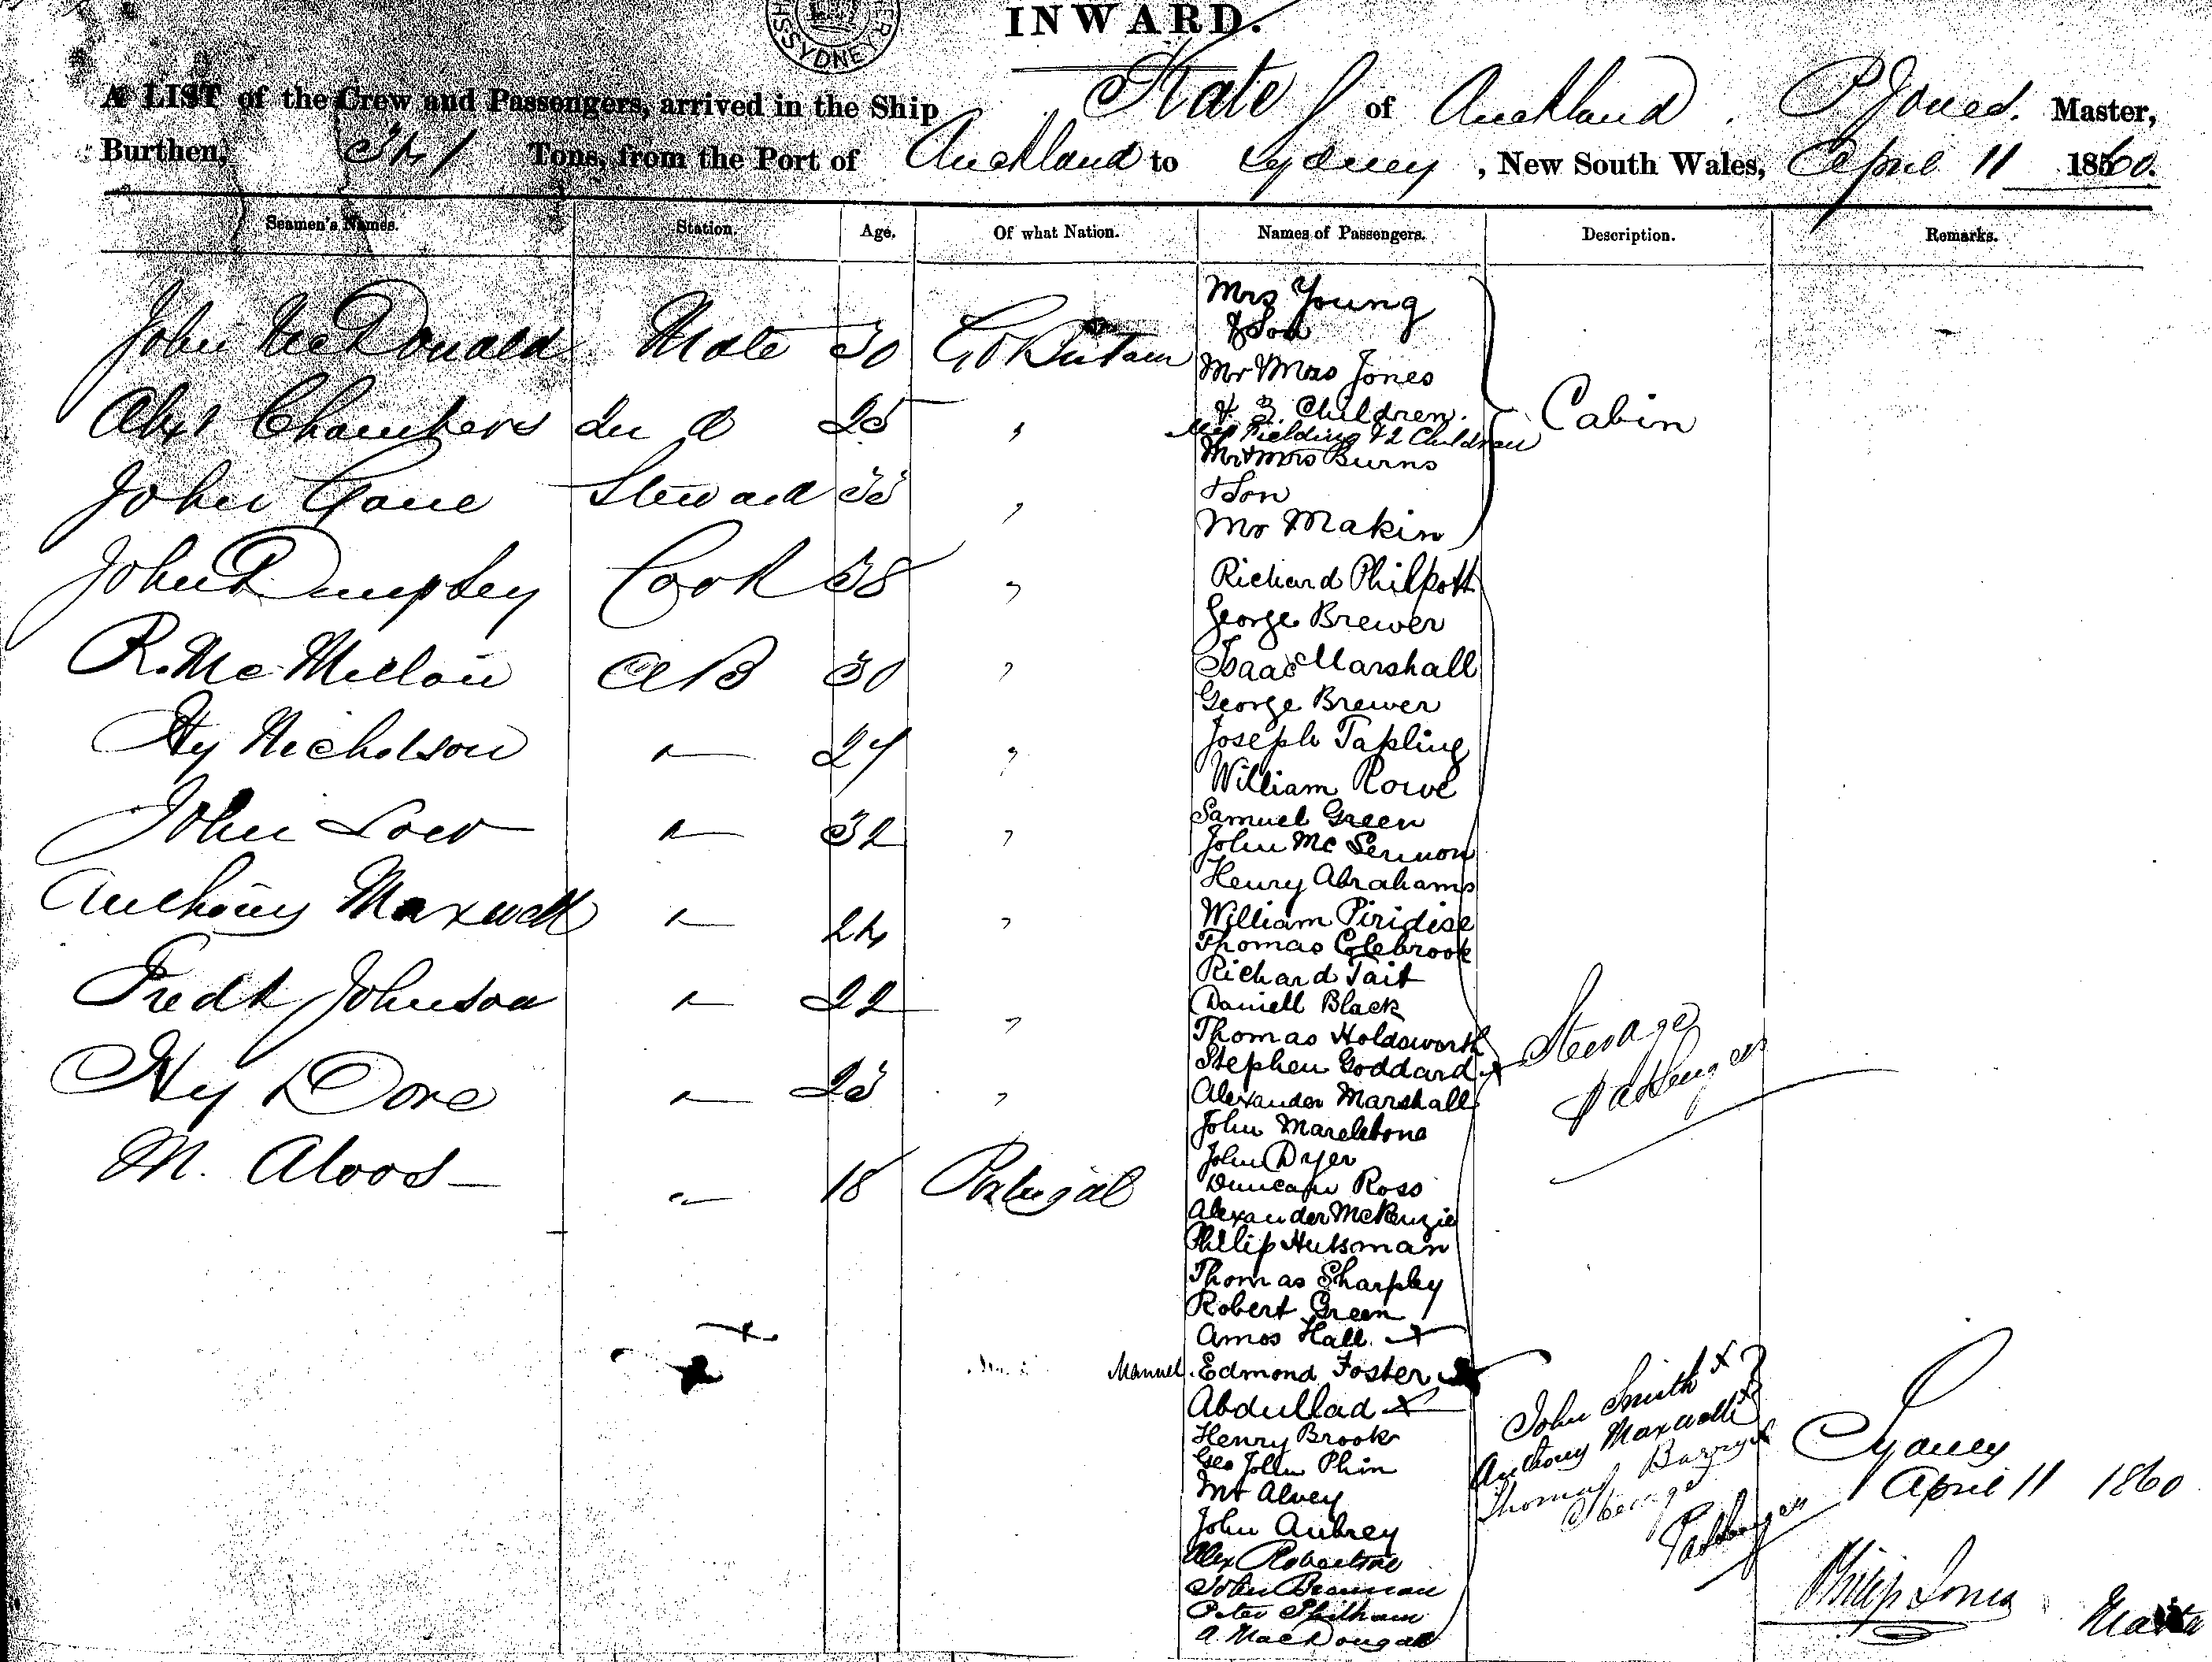 SYDNEY
INWARD.
A LIST of the Crew and Passengers, arrived in the Ship Kate of Auckland. P Jones. Master,
Burthen, 341 Tons, from the Port of Auckland to Sydney, New South Wales, April 11 1860.
Seamen's Names. Station. Age. Of what Nation. Names of Passengers. Description. Remarks.
John McDonald Mate 30 Gt Britain
Alexr Chambers 2n O 25 "
John Gane Steward 35 "
John Dempsey Cook 38 "
R. McMillan AB 30 "
Hy Nicholson " 27 "
John Low " 32 "
Anthony Maxwell " 24 "
Fredk Johnson " 22 "
Hy Dore " 25 "
M. Alvos " 18 Portugal
Mrs Young
& Son
Mr Mrs Jones
& 3 Children.
Mrs Fielding & 2 Children
Mr & Mrs Burns
& Son
Mr Makin
Cabin
Richard Philpott
George Brewer
Isaac Marshall
George Brewer
Joseph Tapling
William Rowe
Samuel Green
John Mc Sermon
Henry Abrahams
William Piridise
Thomas Colebrook
Richard Tait
Daniell Black
Thomas Holdsworth
Stephen Goddard
Alexander Marshall
John Marelebone
John Dyer
Duncan Ross
Alexander McKenzie
Phllip Hutsman
Thomas Sharpley
Robert Green
Amos Hall
Manuel. Edmond Foster
Abdullad
Henry Brook
Geo John Phin
Mr Alvey
John Aubrey
Alex Robertson
John Brennan
Peter
A. MacDougall
Steerage
Passengers
John Smith
Anthony Maxwell
Thomas Barry
Steerage
Passengers
Sydney
April 11 1860
Philip Jones
Master